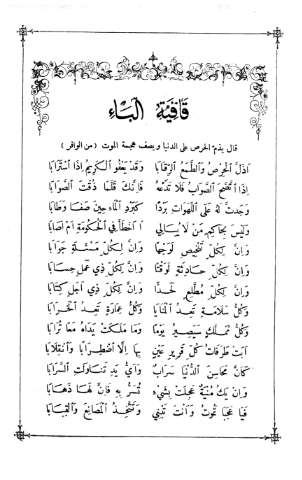 قَافِيَةُ الْبَاءِ
قال يذم الحرص على الدنيا ويصف هجمة الموت (من الوافر)
أَذَلَّ الْحِرْصُ وَالطَّمَعُ الرِّقَابَا وَقَدْ يَعْفُو الْكَرِيمُ إِذَا اسْتَرَابَا
إِذَا اتَّضَحَ الصَّوَابُ فَلَا تَدَعْهُ فَإِنَّكَ قَلَّمَا ذُقْتَ الصَّوَابَا
وَجَدْتَ لَهُ عَلَى اللَّهَوَاتِ بَرْدًا كَبَرْدِ الْمَاءِ حِينَ صَفَا وَطَابَا
وَلَيْسَ بِحَاكِمٍ مَنْ لَا يُبَالِي أَأَخْطَأَ فِي الْحُكُومَةِ أَمْ أَصَابَا
وَإِنَّ لِكُلِّ تَلْخِيصٍ لَوَجْهًا وَإِنَّ لِكُلِّ مَسْئَلَةٍ جَوَابَا
وَإِنَّ لِكُلِّ حَادِثَةٍ لَوَقْتًا وَإِنَّ لِكُلِّ ذِي عَمَلٍ حِسَابَا
وَإِنَّ لِكُلِّ مُطَّلَعٍ لَحَدًّا وَإِنَّ لِكُلِّ ذِي أَجَلٍ كِتَابَا
وَكُلُّ سَلَامَةٍ تَعِدُ الْمَنَايَا وَكُلُّ عِمَارَةٍ تَعِدُ الْخَرَابَا
وَكُلُّ مُمَلَّكٍ سَيَصِيرُ يَوْمًا وَمَا مَلَكَتْ يَدَاهُ مَعًا تُرَابَا
أَبَتْ طَرَفَاتُ كُلِّ قَرِيرِ عَيْنٍ بِهَا إِلَّا اضْطِرَابًا وَانْقِلَابَا
كَأَنَّ مَحَاسِنَ الدُّنْيَا سَرَابٌ وَأَيُّ يَدٍ تَنَاوَلَتِ السَّرَابَا
وَإِنْ يَكُ مُنْيَةٌ عَجِلَتْ بِشَيْءٍ تُسَرُّ بِهِ فَإِنَّ لَهَا ذَهَابَا
فَيَا عَجَبًا تَمُوتُ وَأَنْتَ تَبْنِي وَتَتَّخِذُ الْمَصَانِعَ وَالْقِبَابَا